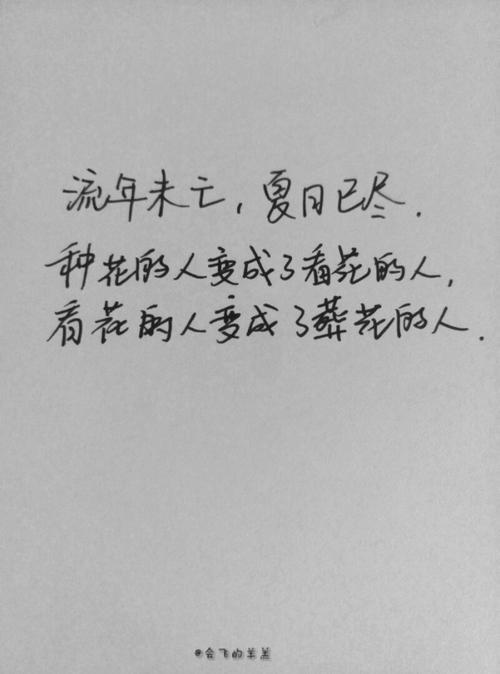 流年未亡,夏日已尽.
种花的人变成了看花的人,
看花的人变成了葬花的人.
@会飞的羊羔